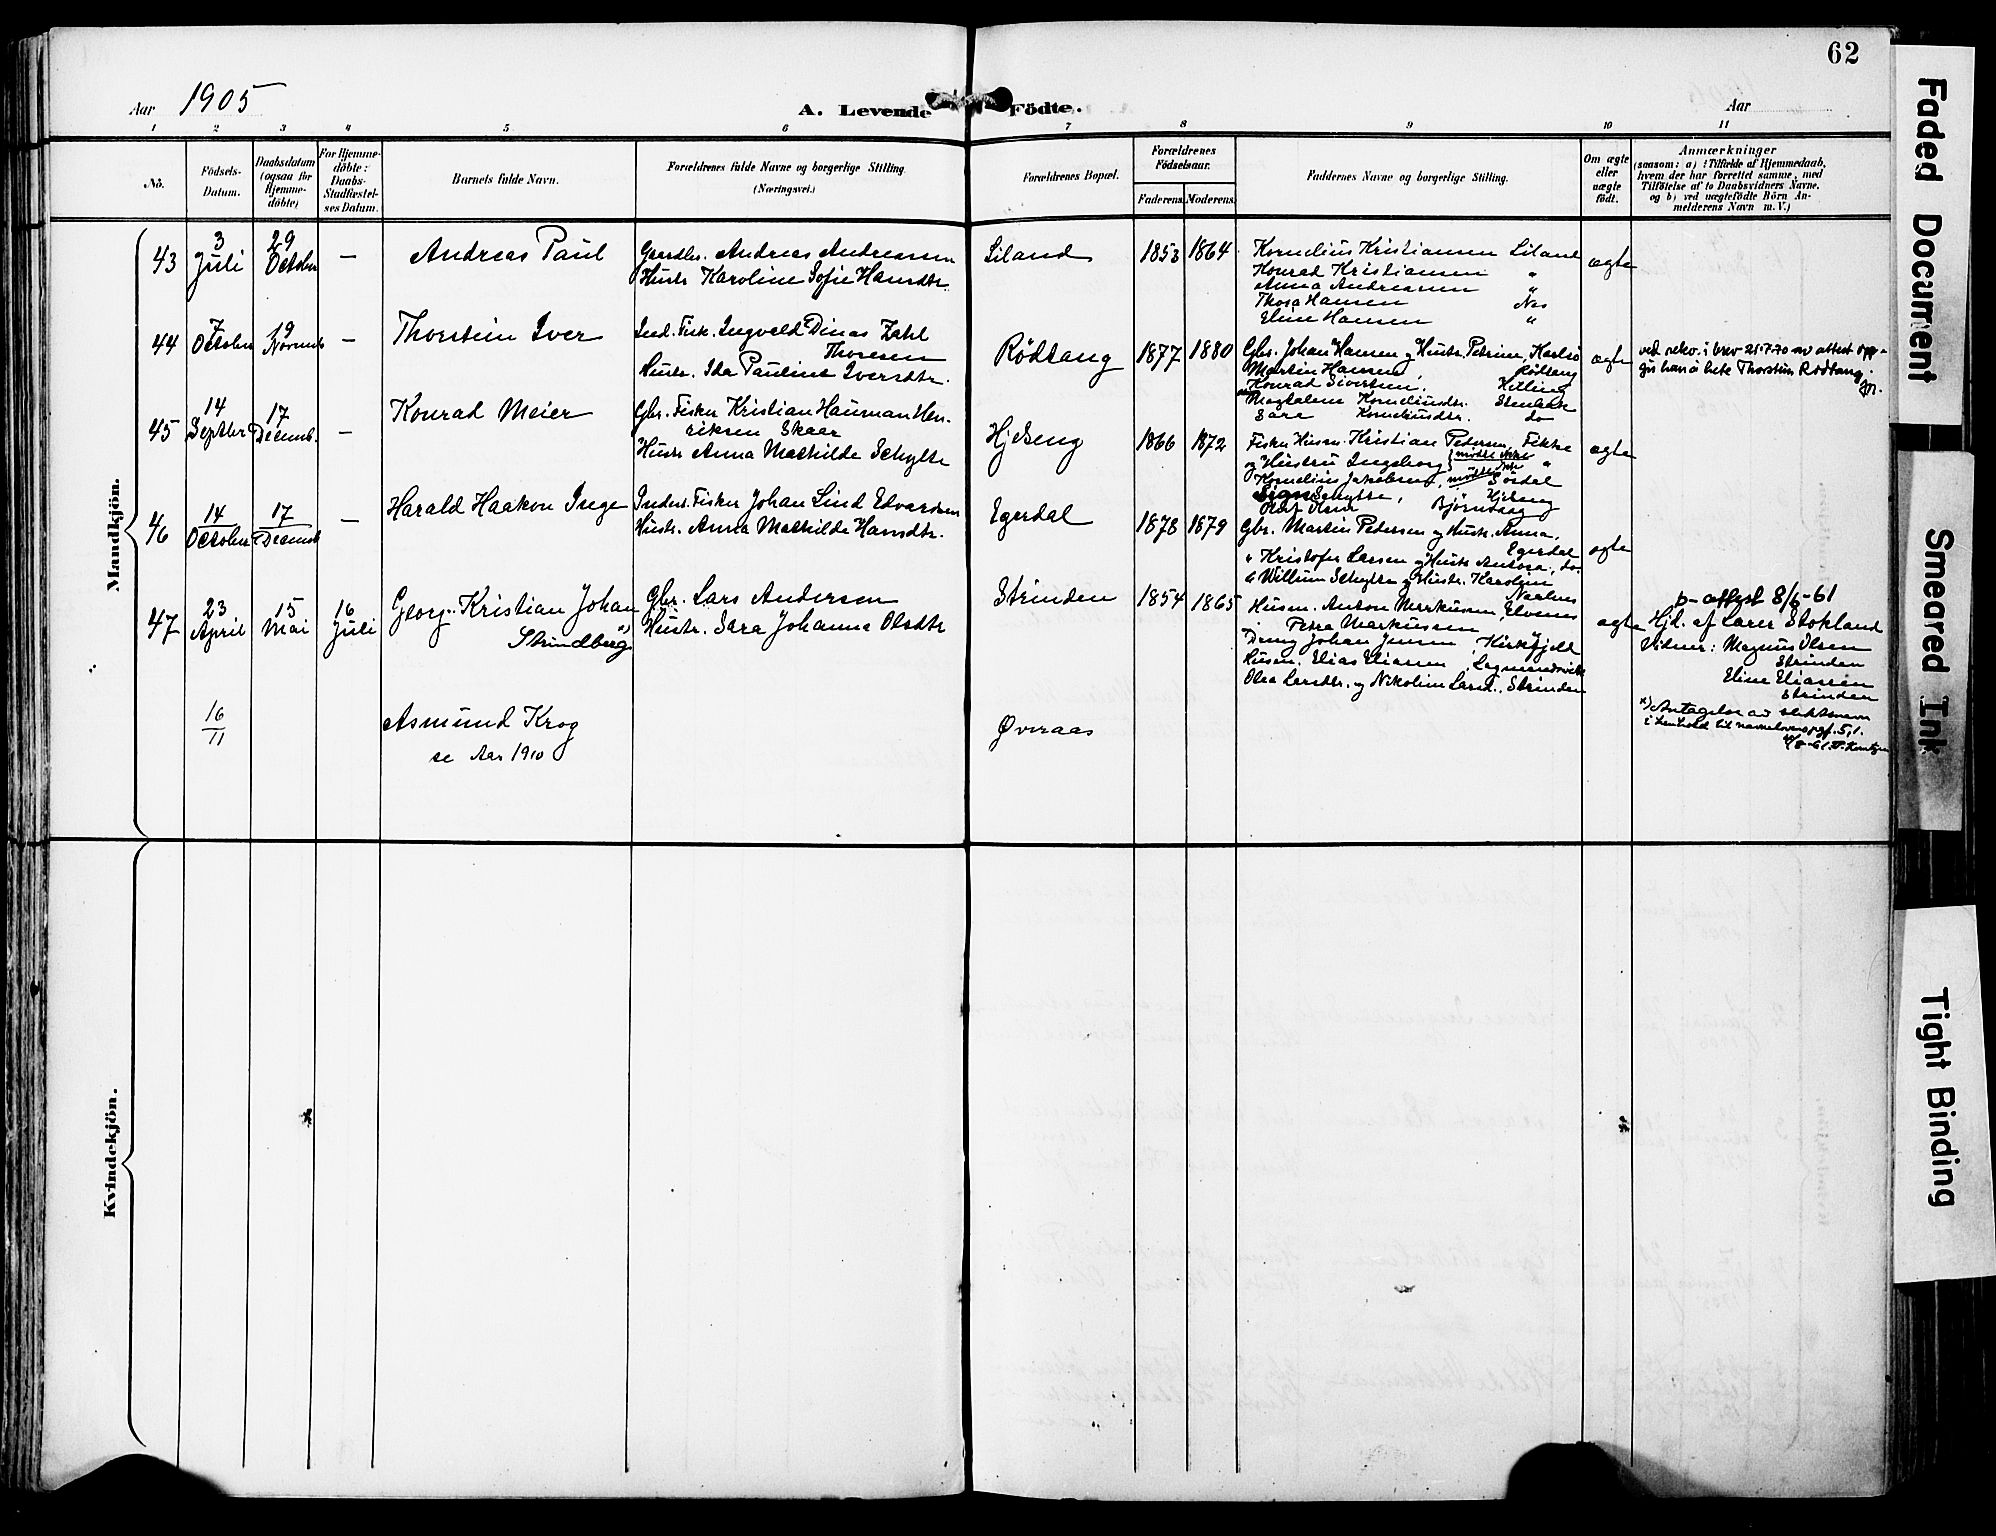 62
Aar 1905
A. Levende Födte.
Aar
1 2 3 4 5 6 7 8 9 10 11
Nò.
Födsels-
Datum.
Daabsdatum
(ogsaa for
Hjemme-
döbte)
For Hjemme-
döbte:
Daabs-
Stadfæstel-
ses Datum.
Barnets fulde Navn.
Forældrenes fulde Navne og borgerlige Stilling.
(Næringsvei.)
Forældrenes Bopæl.
Forældrenes
Födselsaar.
Faderens.
Moderens.
Faddernes Navne og borgerlige Stilling.
Om ægte
eller
uægte
födt.
Anmærkninger
(saasom: a) i Tilfælde af Hjemmedaab,
hvem der har forrettet samme, med
Tilföielse af to Daabsvidners Navne.
og b) ved uægtefödte Börn An-
melderens Navn m. V.)
Mandkjön.
43
3
Juli
29
October
—
Andreas Paul
Gaardbr. Andreas Andreasen
Hustr. Karoline Sofie Hansdtr.
Liland
1853
1864
Kornelius Kristiansen Liland
Konrad Kristiansen "
Anna Andreasen "
Thora Hansen Nes
Eline Hansen "
ægte
44
7
October
19
Novemb
—
Thorstein Iver
Ind. Fisk. Ingvald Dinas Zahl
Thoresen
Hustr. Ida Pauline Iversdtr.
Rødtang
1877
1880
Gbr. Johan Hansen og Hustr. Petrine, Karlsö
Martin Hansen, Rødtang
Konrad Sivertsen,
Magdalene Korneliusdtr.
Sara Korneliusdtr. do
ægte
ved rekv. i brev 21.7.70 av attest opp-
gis han å hete Thorstein Rødtang.
45
14
Septbr
17
Decemb.
—
Konrad Meier
Gbr. Fisker Kristian Hauman Hen-
riksen Skaar
Hustr. Anna Mathilde Schytte
Hjelseng
1866
1872
Fisker Husm. Kristian Pedersen, Fikke
og Hustru Ingeborg mödte ikke "
Kornelius Jakobsen, mödte ikke Sördal
Signe Schytte, Hjelseng
Olaf Olsen Bjørnhaug
ægte
46
14
October
17
Decemb
—
Harald Haakon Inge
Inders. Fisker Johan Lind Edvardsen
Hustr. Anna Mathilde Hansdtr.
Egerdal
1878
1879
Gbr. Martin Pedersen og Hustr. Anna,
Egerdal
" Kristofer Larsen og Hustr. Antona, do.
" Willum Schytte og Hustr. Karoline
ægte
47
23
April
15
Mai
16
Juli
Georg Kristian Johan
Strindberg x)
Gbr. Lars Andersen
Hustr. Sara Johanna Olsdtr
Strinden
1854
1865
Husm. Anton Markussen, Elvenes
Petra Markussen
Dreng Johan Jensen, Kirkfjell
Husm. Elias Eliasen,
Olea Larsdtr. og Nikoline Larsd., Strinden
ægte
p-attest 8/6-61
Hjd. af Lærer Stokland
Vidner: Magnus Olsen
Strinden
Eline Eliasen
Strinden
x) Antagelse av slektsnavn
i henhold til navnelovens pgf. 5,1.
16
11
Asmund Krog
se Aar 1910
Øveraas
Kvindekjön.
Faded Document
Smeared Ink
Tight Binding